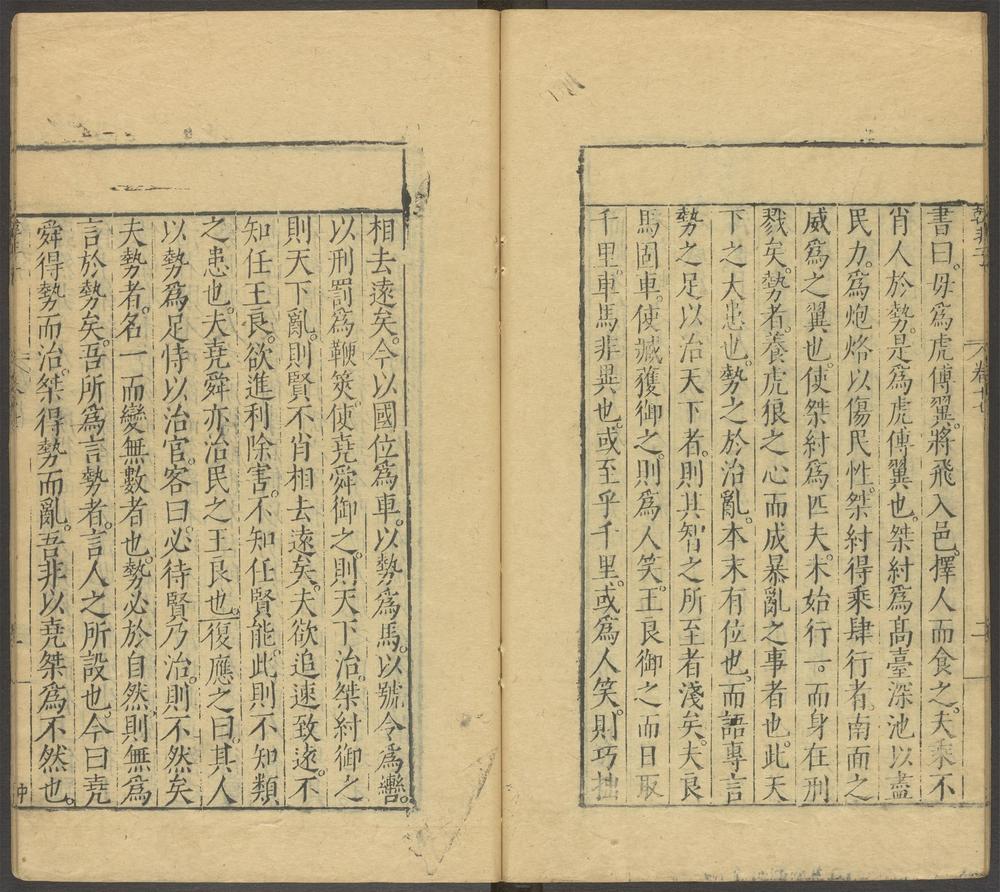 韓非子 卷十七 二
書曰。毋為虎傅翼。將飛入邑。擇人而食之。夫乘不
肖人於勢。是為虎傅翼也。桀紂為高臺深池以盡
民力。為炮烙以傷民性。桀紂得乘肆行者。南面之
威為之翼也。使桀紂為匹夫。未始行一。而身在刑
戮矣。勢者。養虎狼之心而成暴亂之事者也。此天
下之大患也。勢之於治亂。本末有位也。而語專言
勢之足以治天下者。則其智之所至者淺矣。夫良
馬固車。使臧獲御之。則為人笑。王良御之而日取
千里。車馬非異也。或至乎千里。或為人笑。則巧拙
相去遠矣。今以國位為車。以勢為馬。以號令為轡。
以刑罰為鞭筴。使堯舜御之。則天下治。桀紂御之
則天下亂。則賢不肖相去遠矣。夫欲追速致遠。不
知任王良。欲進利除害。不知任賢能。此則不知類
之患也。夫堯舜亦治民之王良也。復應之曰。其人
以勢為足恃以治官。客曰。必待賢乃治。則不然矣
夫勢者。名一而變無數者也。勢必於自然。則無為
言於勢矣。吾所為言勢者。言人之所設也。今曰堯
舜得勢而治。桀得勢而亂。吾非以堯桀為不然也。